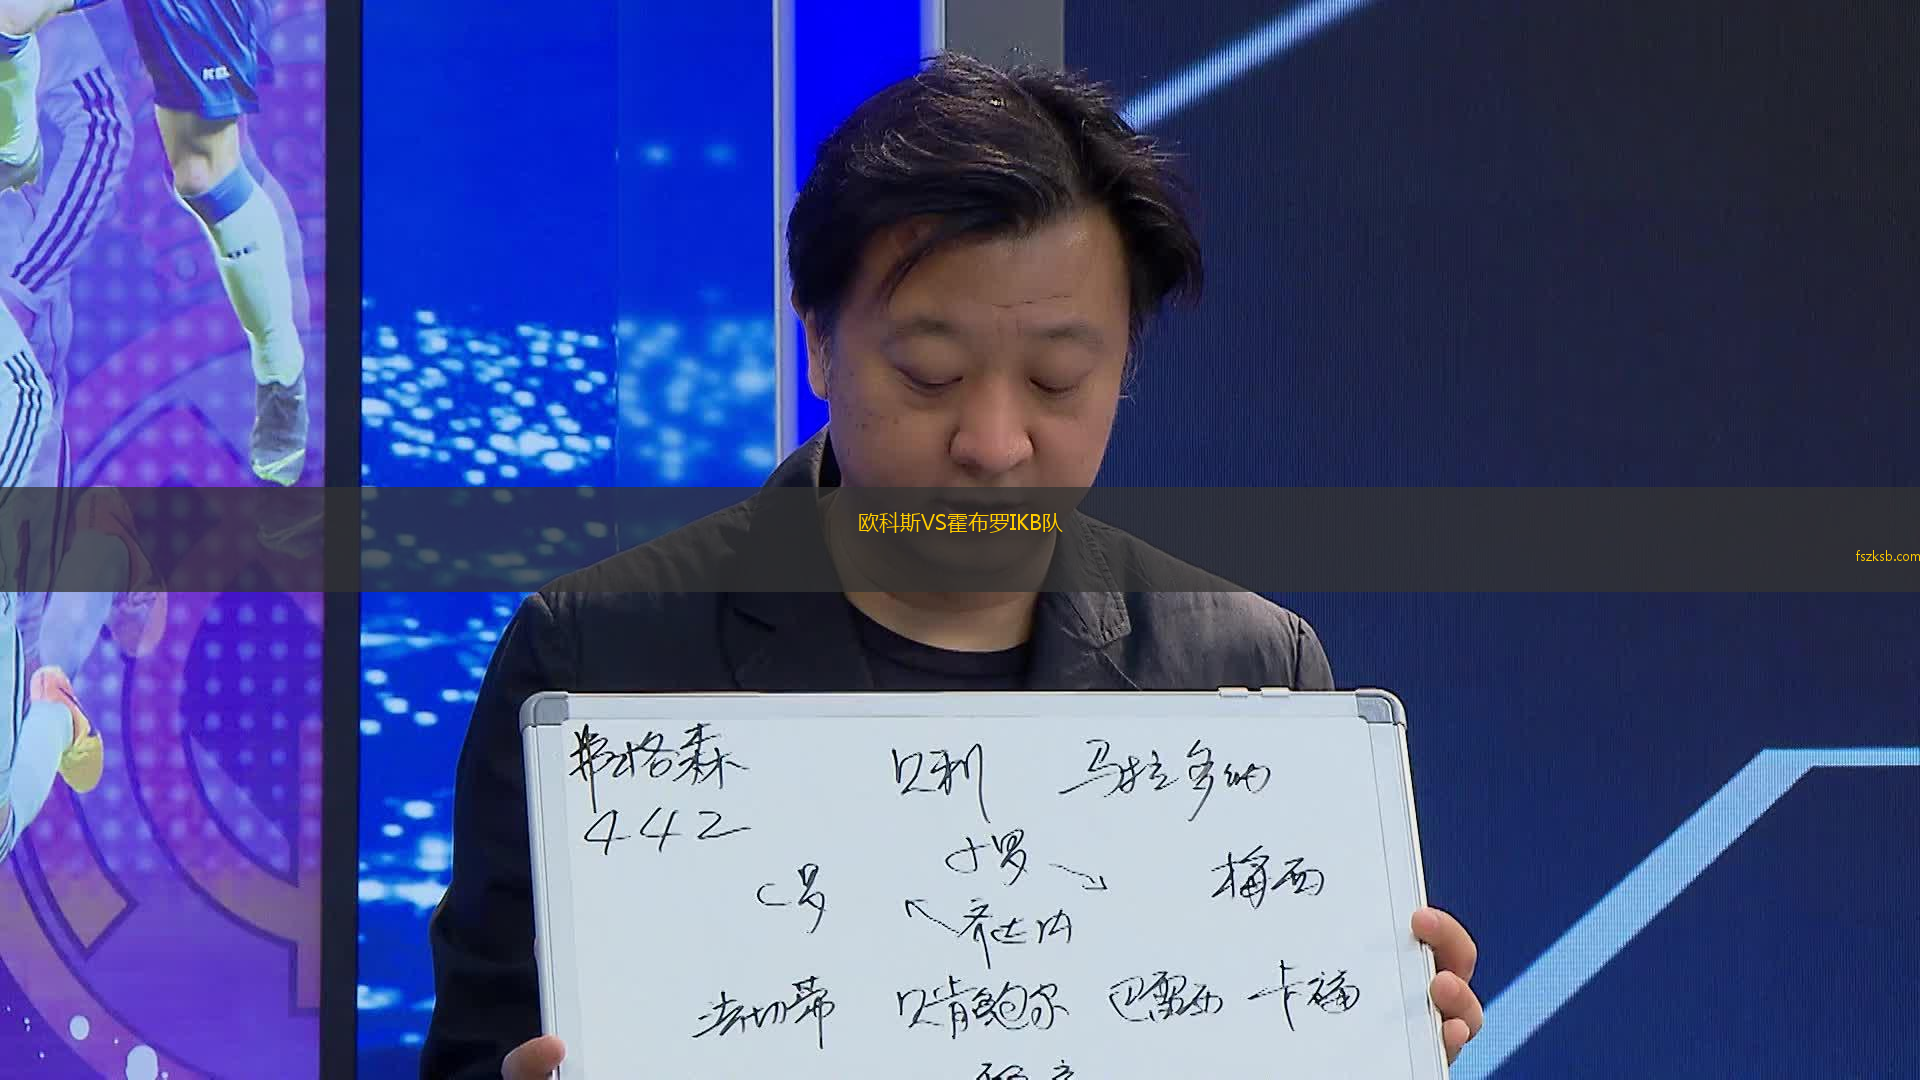 KEL
欧科斯VS霍布罗IKB队
fszksb.com
弗格森 贝利 马拉多纳
442
小罗
C罗 梅西
齐达内
法切蒂 贝肯鲍尔 巴雷西 卡福